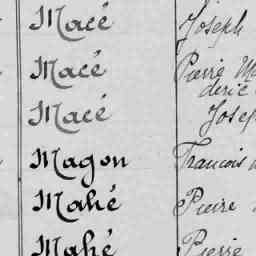 Macé Joseph
Macé Pierre
Macé
Magon François
Mahé Pierre
Mahé Pierre